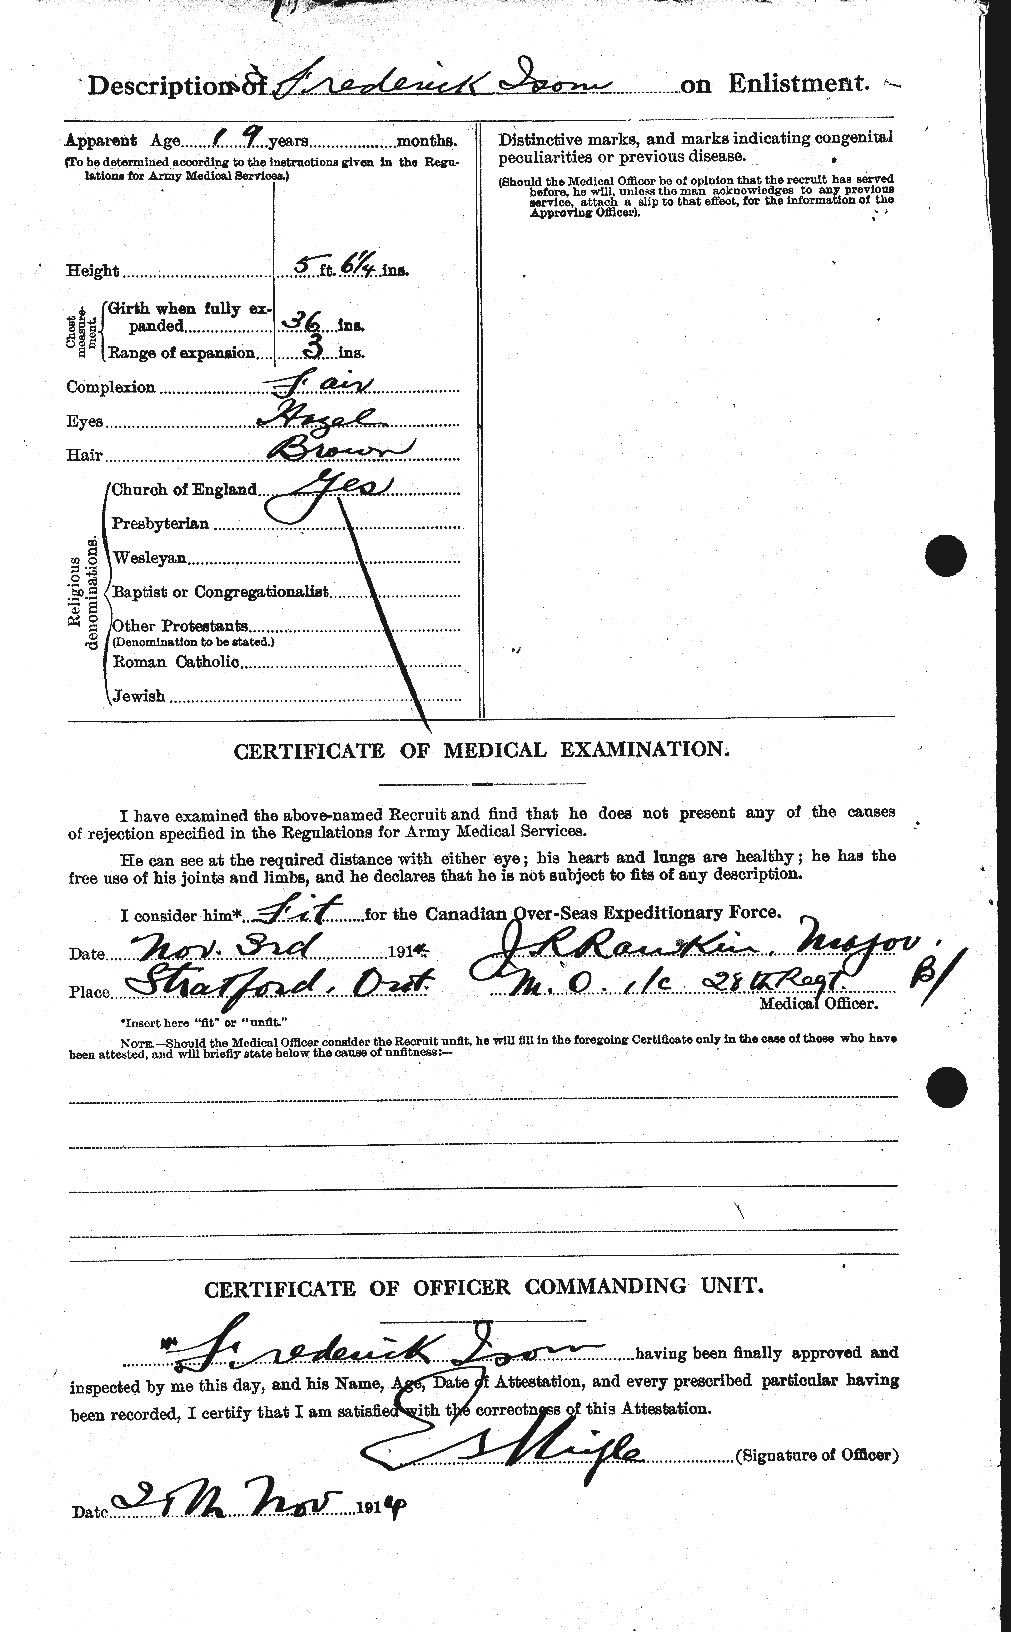 Description of Frederick Isom on Enlistment.
Apparent Age 19 years months.
(To be determined according to the instructions given in the Regu-
lations for Army Medical Services.)
Height 5 ft. 6 1/4 ins.
Chest measure-ment.
Girth when fully ex-
panded 36 ins.
Range of expansion 3 ins.
Complexion Fair
Eyes Hazel
Hair Brown
Religious denominations.
Church of England Yes
Presbyterian
Wesleyan
Baptist or Congregationalist
Other Protestants
(Denomination to be stated.)
Roman Catholic
Jewish
Distinctive marks, and marks indicating congenital
peculiarities or previous disease.
(Should the Medical Officer be of opinion that the recruit has served
before, he will, unless the man acknowledges to any previous
service, attach a slip to that effect, for the information of the
Approving Officer).
CERTIFICATE OF MEDICAL EXAMINATION.
I have examined the above-named Recruit and find that he does not present any of the causes
of rejection specified in the Regulations for Army Medical Services.
He can see at the required distance with either eye; his heart and lungs are healthy; he has the
free use of his joints and limbs, and he declares that he is not subject to fits of any description.
I consider him* Fit for the Canadian Over-Seas Expeditionary Force.
Date Nov. 3rd 1914 J R Rankin, Major.
Place Stratford, Ont. M. O. i/c 28th Regt.
Medical Officer.
*Insert here "fit" or "unfit."
NOTE.—Should the Medical Officer consider the Recruit unfit, he will fill in the foregoing Certificate only in the case of those who have
been attested, and will briefly state below the cause of unfitness:—
CERTIFICATE OF OFFICER COMMANDING UNIT.
Frederick Isom having been finally approved and
inspected by me this day, and his Name, Age, Date of Attestation, and every prescribed particular having
been recorded, I certify that I am satisfied with the correctness of this Attestation.
(Signature of Officer)
Date Nov 1914